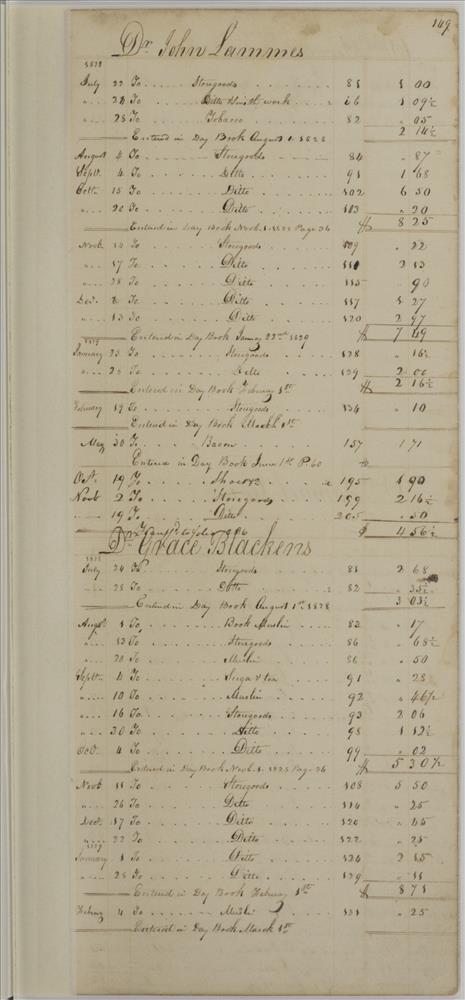 149
Dr. John Lammes
1828
July 22 To Storegoods 81 1 00
" 24 To Ditto & Smith work 1 09½
" 28 To Tobacco 82 " 05
Entered in Day Book August 1. 1828 2 14½
August 4 To Storegoods 84 " 87
Septr. 4 To Ditto 91 1 68
Octr. 15 To Ditto 102 5 50
" 20 To Ditto 103 " 20
Entered in Day Book Novbr. 1. 1828 Page 36 $ 8 25
Novbr. 14 To Storegoods 109 " 22
" 17 To Ditto 110 2 13
" 28 To Ditto 115 " 90
Decr. 8 To Ditto 117 1 27
" 13 To Ditto 120 2 97
Entered in Day Book January 22nd 1829 $ 7 49
1829
January 23 To Storegoods 128 " 16½
" To Ditto 129 2 00
Entered in Day Book February 1st $ 2 16½
February 19 To Storegoods 134 " 10
Entered in Day Book March 1st
May 30 To Bacon 157 1 71
Entered in Day Book June 1st P. 60 $
Oct. 19 To Shoes 195 1 90
Novbr 2 To Storegoods 199 2 16½
" 19 To Ditto 205 " 50
Transfd. to folio $ 4 56½
Dr. Grace Blackens
1828
July 24 To Storegoods 81 2 68
" 28 To Ditto 82 " 35½
Entered in Day Book August 1st 1828 3 03½
Augst. 1 To Book Muslin 82 " 17
" 12 To Storegoods 86 " 68½
" 20 To Muslin 86 " 50
Septr. 4 To Sugar & tea 91 " 28
" 10 To Muslin 92 " 46½
" 16 To Storegoods 93 2 06
" 30 To Ditto 98 1 12½
Oct. 4 To Ditto 99 " 02
Entered in Day Book Novbr. 1. 1828 Page 36 $ 5 30½
Novbr 11 To Storegoods 108 5 50
" 26 To Ditto 114 " 25
Decr. 17 To Ditto 120 " 45
" 22 To Ditto 122 " 25
1829
January 1 To Ditto 124 2 15
" 28 To Ditto 129 " 11
Entered in Day Book February 1st $ 8 71
Februy 4 To Muslin 131 " 25
Entered in Day Book March 1st